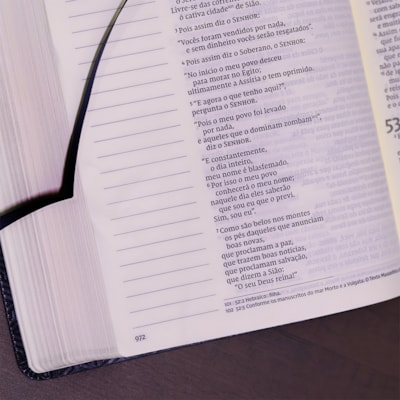 Livre-se das correntes
ó cativa cidade de Sião.
³ Pois assim diz o SENHOR:
"Vocês foram vendidos por nada,
e sem dinheiro vocês serão resgatados".
⁴ Pois assim diz o Soberano, o SENHOR:
"No início o meu povo desceu
para morar no Egito;
ultimamente a Assíria o tem oprimido.
⁵ "E agora o que tenho aqui?",
pergunta o SENHOR.
"Pois o meu povo foi levado
por nada,
e aqueles que o dominam zombam",
diz o SENHOR.
"E constantemente,
o dia inteiro,
meu nome é blasfemado.
⁶ Por isso o meu povo
conhecerá o meu nome;
naquele dia eles saberão
que sou eu que o previ.
Sim, sou eu".
⁷ Como são belos nos montes
os pés daqueles que anunciam
boas novas,
que proclamam a paz,
que trazem boas notícias,
que proclamam salvação,
que dizem a Sião:
"O seu Deus reina!"
52:2 Hebraico: filha.
52:5 Conforme os manuscritos do mar Morto e a Vulgata; O Texto
972
53